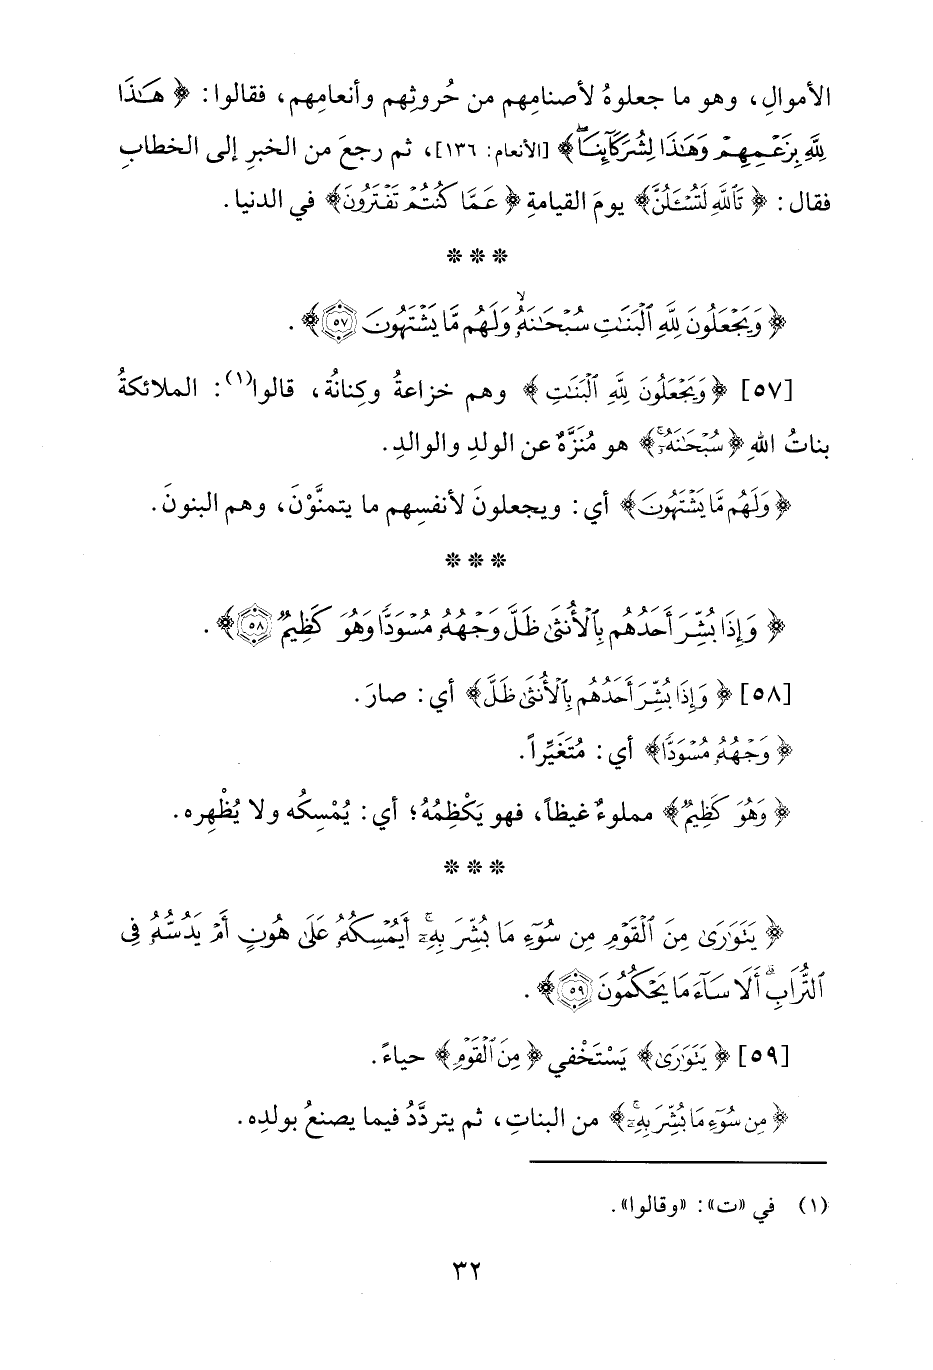 الأموالِ، وهو ما جعلوهُ لأصنامِهم من حُروثِهم وأنعامِهم، فقالوا: ﴿هَـٰذَا
لِلَّهِ بِزَعْمِهِمْ وَهَـٰذَا لِشُرَكَآئِنَا﴾ [الأنعام: ١٣٦]، ثم رجعَ من الخبرِ إلى الخطابِ
فقال: ﴿تَٱللَّهِ لَتُسْـَٔلُنَّ﴾ يومَ القيامةِ ﴿عَمَّا كُنتُمْ تَفْتَرُونَ﴾ في الدنيا.
* * *
﴿وَيَجْعَلُونَ لِلَّهِ ٱلْبَنَـٰتِ سُبْحَـٰنَهُۥ ۙ وَلَهُم مَّا يَشْتَهُونَ ۝٥٧﴾.
[٥٧] ﴿وَيَجْعَلُونَ لِلَّهِ ٱلْبَنَـٰتِ﴾ وهم خزاعةُ وكِنانةُ، قالوا(١): الملائكةُ
بناتُ اللهِ ﴿سُبْحَـٰنَهُۥ ۚ﴾ هو مُنَزَّهٌ عن الولدِ والوالدِ.
﴿وَلَهُم مَّا يَشْتَهُونَ﴾ أي: ويجعلونَ لأنفسِهم ما يتمنَّوْنَ، وهم البنونَ.
* * *
﴿وَإِذَا بُشِّرَ أَحَدُهُم بِٱلْأُنثَىٰ ظَلَّ وَجْهُهُۥ مُسْوَدًّا وَهُوَ كَظِيمٌ ۝٥٨﴾.
[٥٨] ﴿وَإِذَا بُشِّرَ أَحَدُهُم بِٱلْأُنثَىٰ ظَلَّ﴾ أي: صارَ.
﴿وَجْهُهُۥ مُسْوَدًّا﴾ أي: مُتَغَيِّراً.
﴿وَهُوَ كَظِيمٌ﴾ مملوءٌ غيظاً، فهو يَكْظِمُهُ؛ أي: يُمْسِكُه ولا يُظْهِره.
* * *
﴿يَتَوَٰرَىٰ مِنَ ٱلْقَوْمِ مِن سُوٓءِ مَا بُشِّرَ بِهِۦٓ ۚ أَيُمْسِكُهُۥ عَلَىٰ هُونٍ أَمْ يَدُسُّهُۥ فِي
ٱلتُّرَابِ ۗ أَلَا سَآءَ مَا يَحْكُمُونَ ۝٥٩﴾.
[٥٩] ﴿يَتَوَٰرَىٰ﴾ يَسْتَخْفي ﴿مِنَ ٱلْقَوْمِ﴾ حياءً.
﴿مِن سُوٓءِ مَا بُشِّرَ بِهِۦٓ ۚ﴾ من البناتِ، ثم يتردَّدُ فيما يصنعُ بولدِه.
(١) في «ت»: «وقالوا».
٣٢